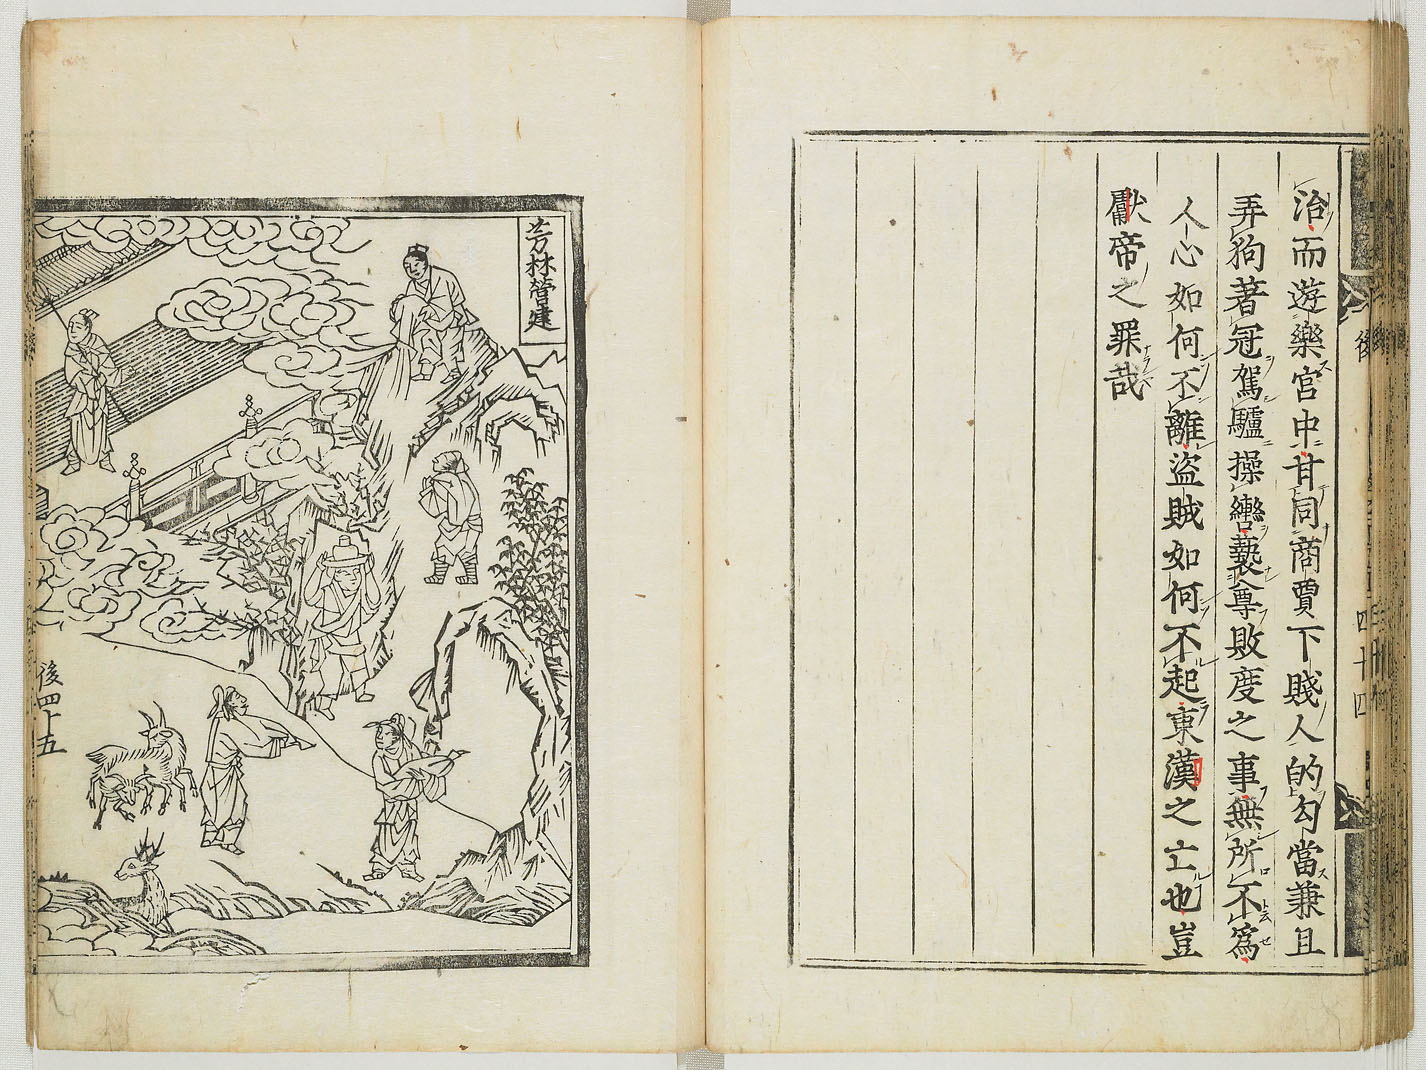 治而遊樂宮中甘同商賈下賤人的勾當兼且
弄狗著冠駕驢操轡褻尊敗度之事無所不爲
人心如何不離盜賊如何不起東漢之亡也豈
獻帝之罪哉
後
四十四
芳林營建
後四十五